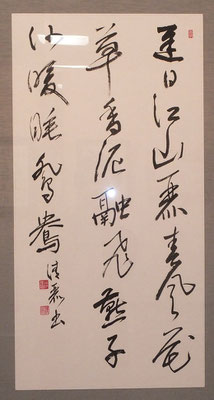 遲日江山麗春風花
草香泥融飛燕子
沙暖睡鴛鴦